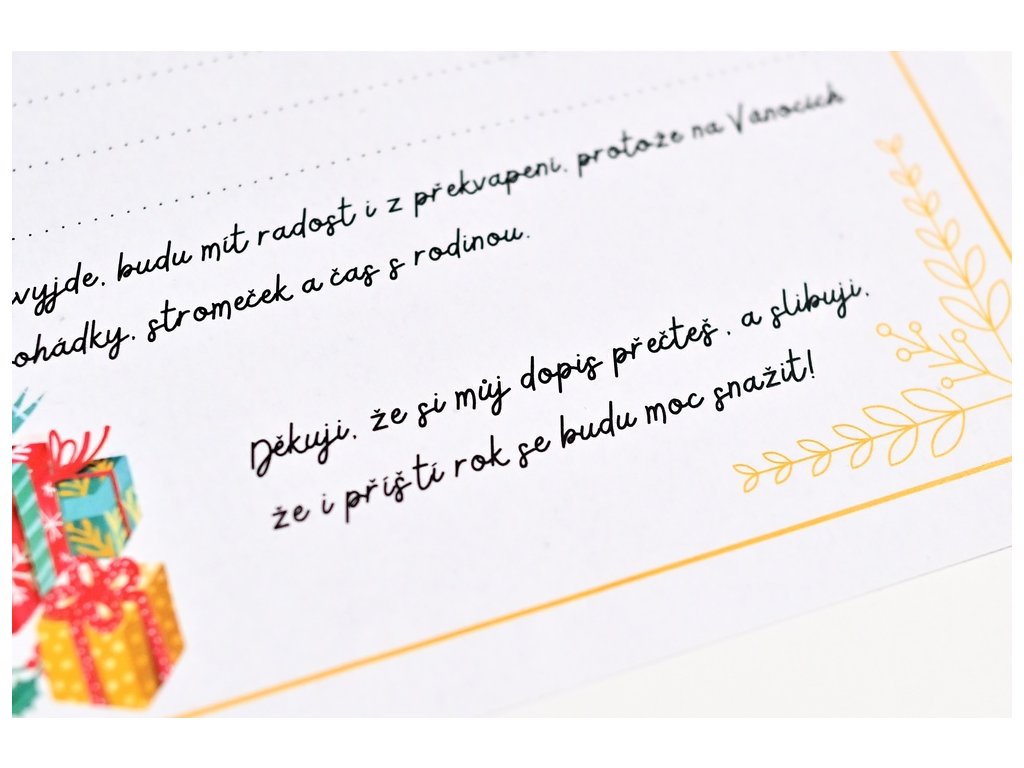 vyjde, budu mít radost i z překvapení, protože na Vánocích
ohádky, stromeček a čas s rodinou.
Děkuji, že si můj dopis přečteš, a slibuji,
že i příští rok se budu moc snažit!